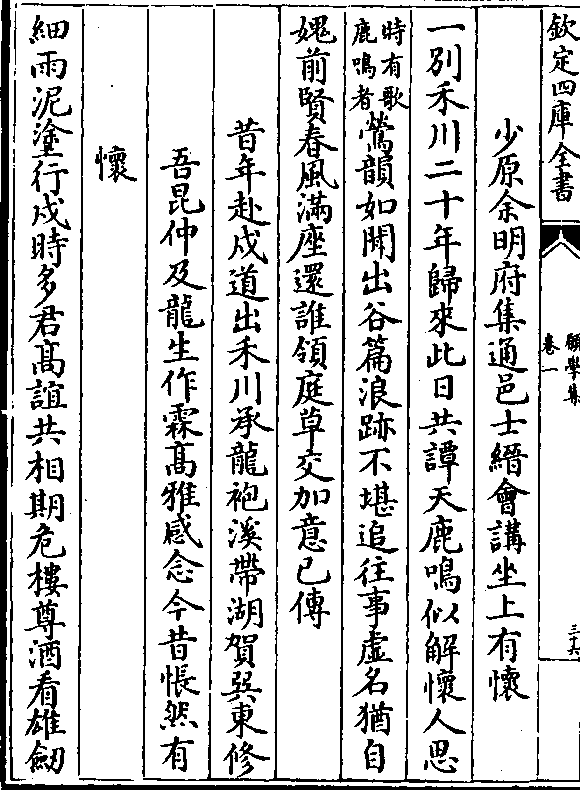 欽定四庫全書
願學集
卷一
三十六
少原余明府集通邑士縉會講坐上有懷
一別禾川二十年歸來此日共譚天鹿鳴似解懷人思
時有歌
鹿鳴者
鶯韻如開出谷篇浪跡不堪追往事虛名猶自
媿前賢春風滿座還誰領庭草交加意已傳
昔年赴戍道出禾川承龍袍溪帶湖賀巽東修
吾昆仲及龍生作霖高雅感念今昔悵然有
懷
細雨泥塗行戍時多君高誼共相期危樓尊酒看雄劒